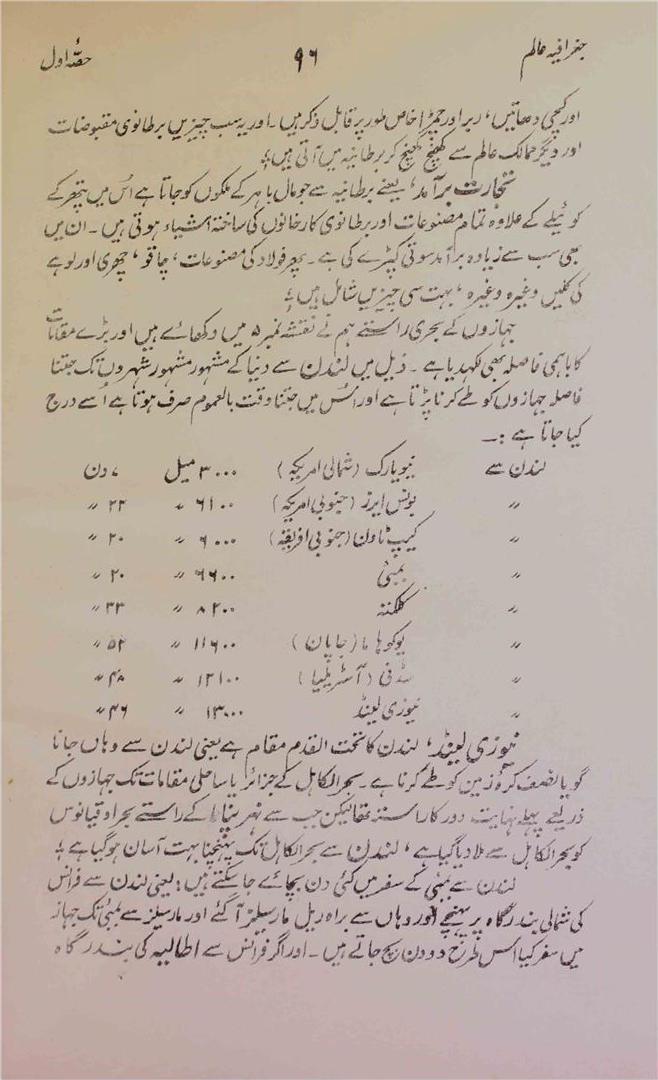 جغرافیہ عالم ۹۶ حصّہ اول
اور کچی دھاتیں، ربر اور چمڑا خاص طور پر قابل ذکر ہیں۔ اور یہ سب چیزیں برطانوی مقبوضات
اور دیگر ممالک عالم سے کھنچ کھنچ کر برطانیہ میں آتی ہیں؛
تجارت برآمد، یعنے برطانیہ سے جو مال باہر کے ملکوں کو جاتا ہے اُس میں پتھر کے
کوئیلے کے علاوہ تمام مصنوعات اور برطانوی کارخانوں کی ساختہ اشیاء ہوتی ہیں۔ ان میں
بھی سب سے زیادہ برآمد سوتی کپڑے کی ہے۔ پھر فولاد کی مصنوعات، چاقو، چھری اور لوہے
کی کلیں وغیرہ وغیرہ، بہت سی چیزیں شامل ہیں؛
جہازوں کے بحری راستے ہم نے نقشہ نمبر ۵ میں دکھائے ہیں اور بڑے مقامات
کا باہمی فاصلہ بھی لکھدیا ہے۔ ذیل میں لندن سے دنیا کے مشہور مشہور شہروں تک جتنا
فاصلہ جہازوں کو طے کرنا پڑتا ہے اور اُس میں جتنا وقت بالعموم صرف ہوتا ہے اُسے درج
کیا جاتا ہے :۔
لندن سے نیویارک (شمالی امریکہ) ۳۰۰۰ میل ۷ دن
〃 بونس ایرز (جنوبی امریکہ) ۶۱۰۰ 〃 ۲۲ 〃
〃 کیپ ٹاون (جنوبی افریقہ) ۶۰۰۰ 〃 ۲۰ 〃
〃 بمبئی ۶۶۰۰ 〃 ۲۰ 〃
〃 کلکتہ ۸۲۰۰ 〃 ۳۳ 〃
〃 یوکوہاما (جاپان) ۱۱۶۰۰ 〃 ۵۲ 〃
〃 سڈنی (آسٹریلیا) ۱۲۱۰۰ 〃 ۴۸ 〃
〃 نیوزی لینڈ ۱۳۰۰۰ 〃 ۴۶ 〃
نیوزی لینڈ، لندن کا تحت القدم مقام ہے یعنی لندن سے وہاں جانا
گویا نصف کرۂ زمین کو طے کرنا ہے۔ بحر الکاہل کے جزائر یا ساحلی مقامات تک جہازوں کے
ذریعے پہلے نہایت دور کا راستہ تھا لیکن جب سے نہر پناما کے راستے بحر اوقیانوس
کو بحر الکاہل سے ملا دیا گیا ہے، لندن سے بحر الکاہل تک پہنچنا بہت آسان ہو گیا ہے؛
لندن سے بمبئی کے سفر میں کئی دن بچائے جا سکتے ہیں؛ یعنی لندن سے فرانس
کی شمالی بندرگاہ پر پہنچے اور وہاں سے براہ ریل مارسیلز آ گئے اور مارسیلز سے بمبئی تک جہاز
میں سفر کیا اس طرح دو دن بچ جاتے ہیں۔ اور اگر فرانس سے اطالیہ کی بندرگاہ